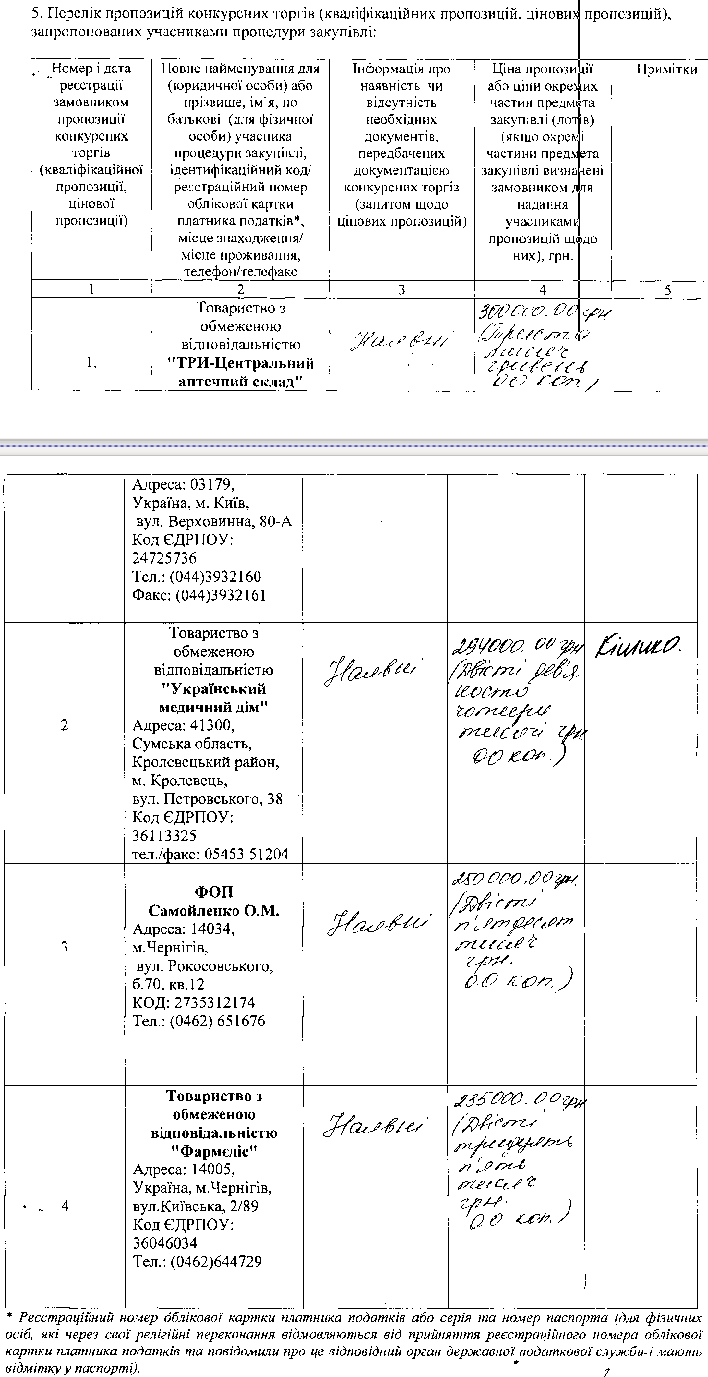 5. Перелік пропозицій конкурсних торгів (кваліфікаційних пропозицій, цінових пропозицій),
запропонованих учасниками процедури закупівлі:
Номер і дата
реєстрації
замовником
пропозиції
конкурсних
торгів
(кваліфікаційної
пропозиції,
цінової
пропозиції)
Повне найменування для
(юридичної особи) або
прізвище, ім'я, по
батькові (для фізичної
особи) учасника
процедури закупівлі,
ідентифікаційний код/
реєстраційний номер
облікової картки
платника податків*,
місце знаходження/
місце проживання,
телефон/телефакс
Інформація про
наявність чи
відсутність
необхідних
документів,
передбачених
документацією
конкурсних торгів
(запитом щодо
цінових пропозицій)
Ціна пропозиції
або ціни окремих
частин предмета
закупівлі (лотів)
(якщо окремі
частини предмета
закупівлі визначені
замовником для
надання
учасниками
пропозицій щодо
них), грн.
Примітки
1
2
3
4
5
1.
Товариство з
обмеженою
відповідальністю
"ТРИ-Центральний
аптечний склад"
Наявні
300000.00 грн
(Триста
тисяч
гривень
00 коп.)
Адреса: 03179,
Україна, м. Київ,
вул. Верховинна, 80-А
Код ЄДРПОУ:
24725736
Тел.: (044)3932160
Факс: (044)3932161
2
Товариство з
обмеженою
відповідальністю
"Український
медичний дім"
Адреса: 41300,
Сумська область,
Кролевецький район,
м. Кролевець,
вул. Петровського, 38
Код ЄДРПОУ:
36113325
тел./факс: 05453 51204
Наявні
294000.00 грн
(Двісті дев'я
носто
чотири
тисячі грн
00 коп.)
3
ФОП
Самойленко О.М.
Адреса: 14034,
м.Чернігів,
вул. Рокосовського,
б.70, кв.12
КОД: 2735312174
Тел.: (0462) 651676
Наявні
250000.00 грн.
(Двісті
п'ятдесят
тисяч
грн.
00 коп.)
4
Товариство з
обмеженою
відповідальністю
"Фармєліс"
Адреса: 14005,
Україна, м.Чернігів,
вул.Київська, 2/89
Код ЄДРПОУ:
36046034
Тел.: (0462)644729
Наявні
235000.00 грн
(Двісті
тридцять
п'ять
тисяч
грн.
00 коп.)
* Реєстраційний номер облікової картки платника податків або серія та номер паспорта (для фізичних
осіб, які через свої релігійні переконання відмовляються від прийняття реєстраційного номера облікової
картки платника податків та повідомили про це відповідний орган державної податкової служби і мають
відмітку у паспорті).